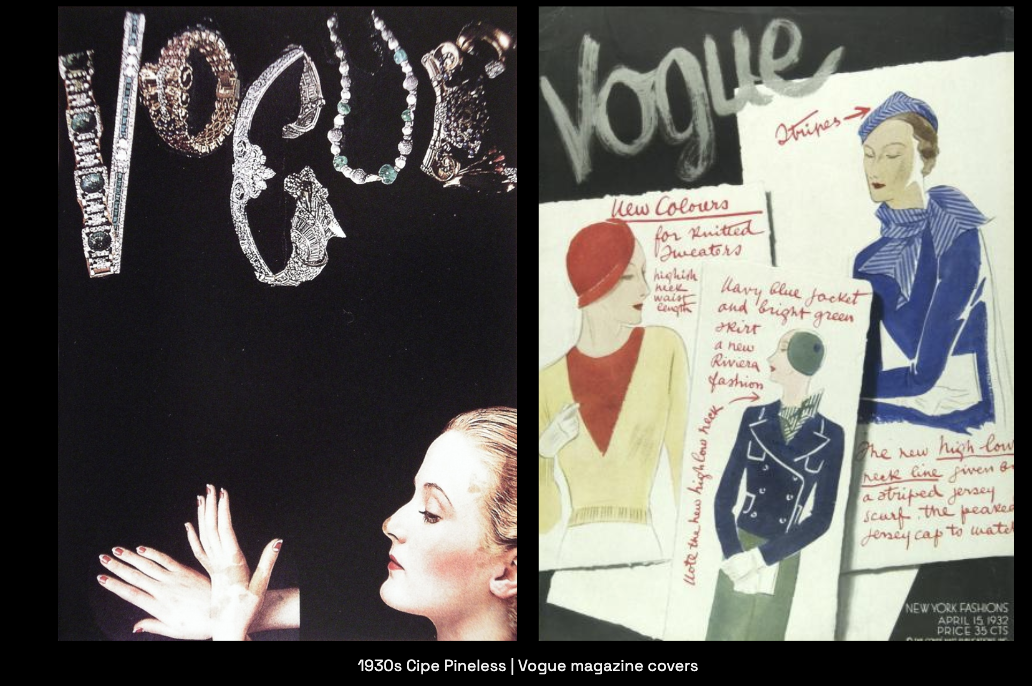 Vogue
Vogue
Stripes
New Colours
for Knitted
Sweaters
highish
neck
waist
length
Navy blue jacket
and bright green
skirt
a new
Riviera
fashion
Note the new high low neck
The new high-low
neck line given
a striped jersey
scarf. the peaked
jersey cap to match
NEW YORK FASHIONS
APRIL 15, 1932
PRICE 35 CTS
1930s Cipe Pineless | Vogue magazine covers